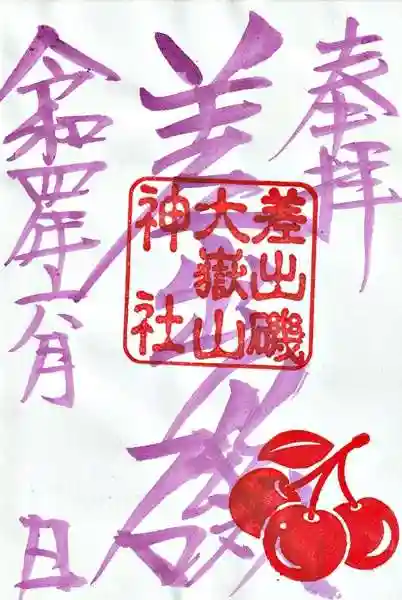 奉拝
差出磯
差出磯
大嶽山
神社
令和四年六月
日